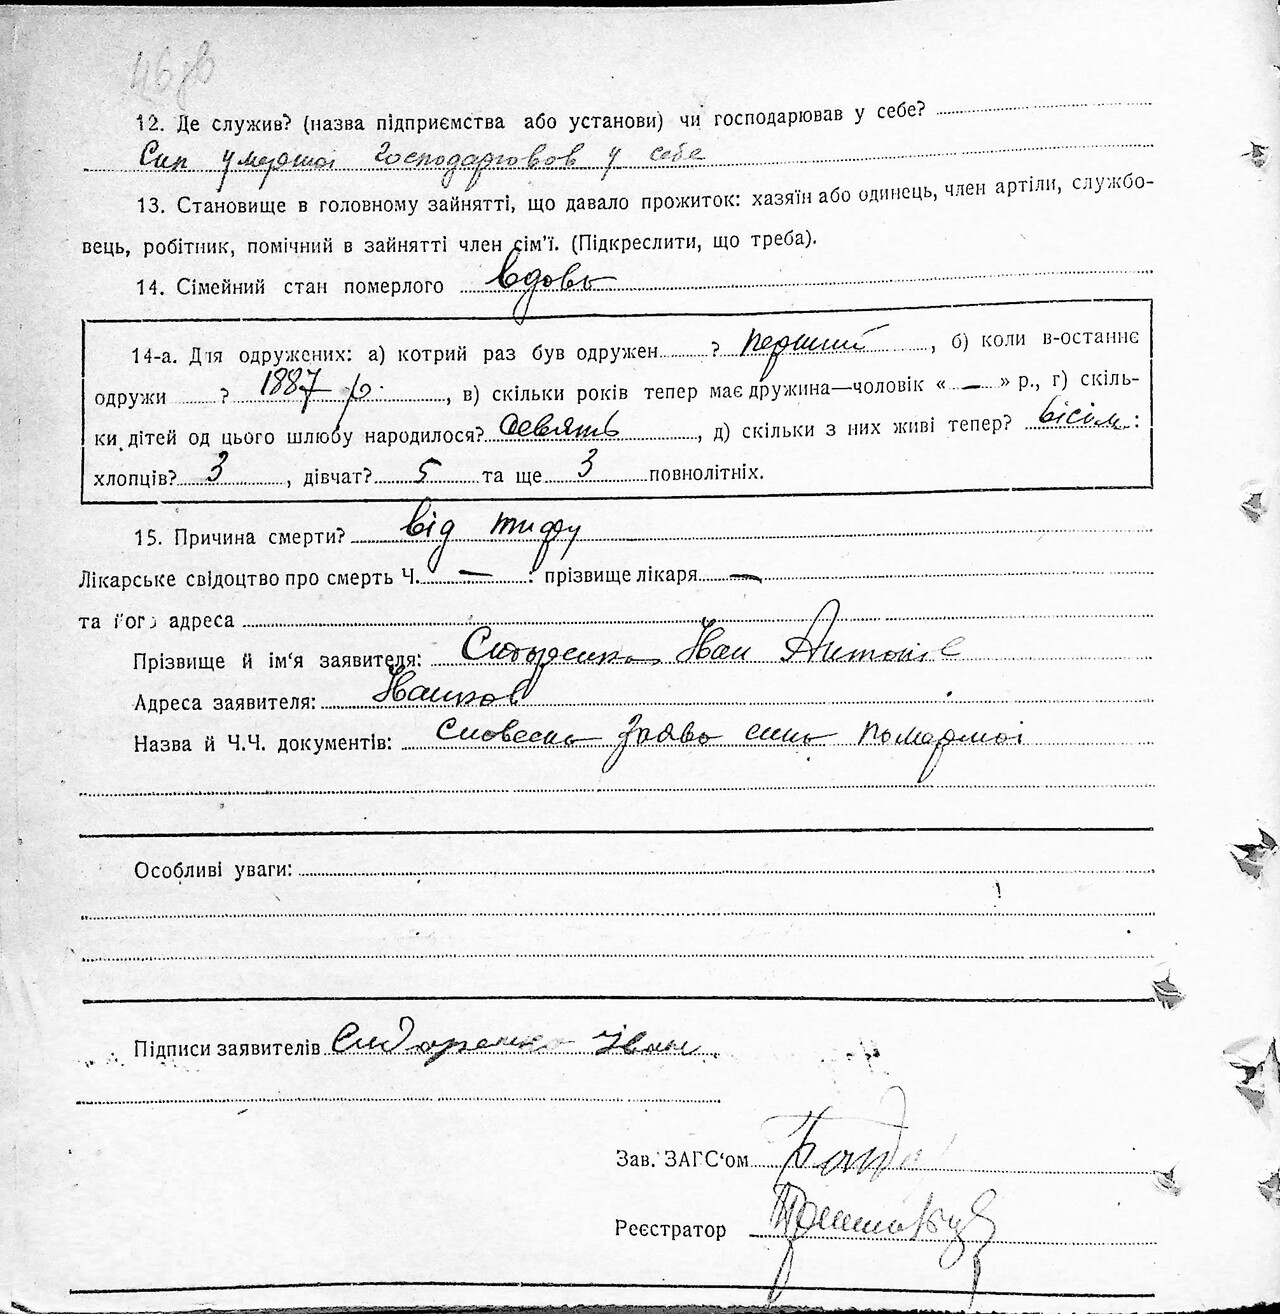 12. Де служив? (назва підприємства або установи) чи господарював у себе?
Син умершої господарював у себе
13. Становище в головному зайнятті, що давало прожиток: хазяїн або одинець, член артіли, службо-
вець, робітник, помічний в зайнятті член сім'ї. (Підкреслити, що треба).
14. Сімейний стан померлого вдова
14-а. Для одружених: а) котрий раз був одружен ? перший, б) коли в-останнє
одружи ? 1887 р., в) скільки років тепер має дружина—чоловік « — » р., г) скіль-
ки дітей од цього шлюбу народилося? девять, д) скільки з них живі тепер? вісім:
хлопців? 3, дівчат? 5 та ще 3 повнолітніх.
15. Причина смерти? від тифу
Лікарське свідоцтво про смерть Ч. — : прізвище лікаря —
та його адреса
Прізвище й ім'я заявителя: Сидоренко Іван Антонов
Адреса заявителя: Іванков
Назва й Ч.Ч. документів: словесна заява сина помершої
Особливі уваги:
Підписи заявителів Сидоренко Іван
Зав. ЗАГС'ом
Реєстратор